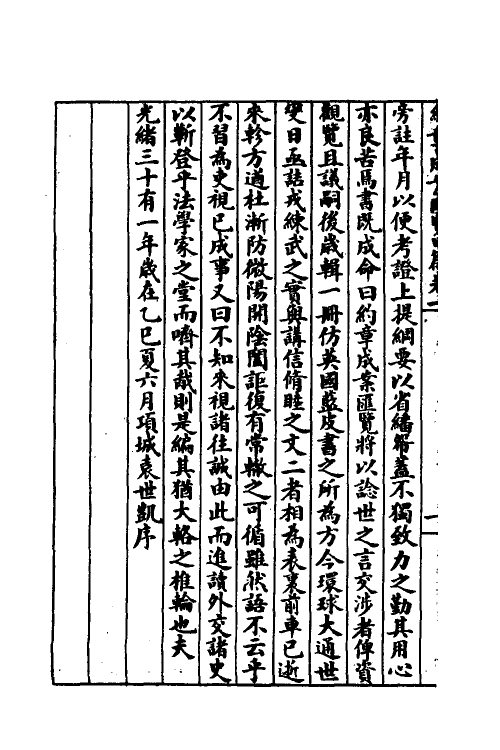 旁註年月以便考證上提綱要以省繙帋蓋不獨致力之勤其用心
亦良苦焉書既成命曰約章成案匯覽將以諗世之言交涉者俾資
觀覽且議嗣後歲輯一冊仿英國藍皮書之所為方今環球大通世
變日亟詰戎練武之實與講信脩睦之文二者相為表裏前車已逝
來軫方遒杜漸防微陽開陰闔詎復有常轍之可循雖然語不云乎
不習為吏視已成事又曰不知來視諸往誠由此而進讀外交諸史
以蘄登乎法學家之堂而嚌其胾則是編其猶大輅之椎輪也夫
光緒三十有一年歲在乙巳夏六月項城袁世凱序